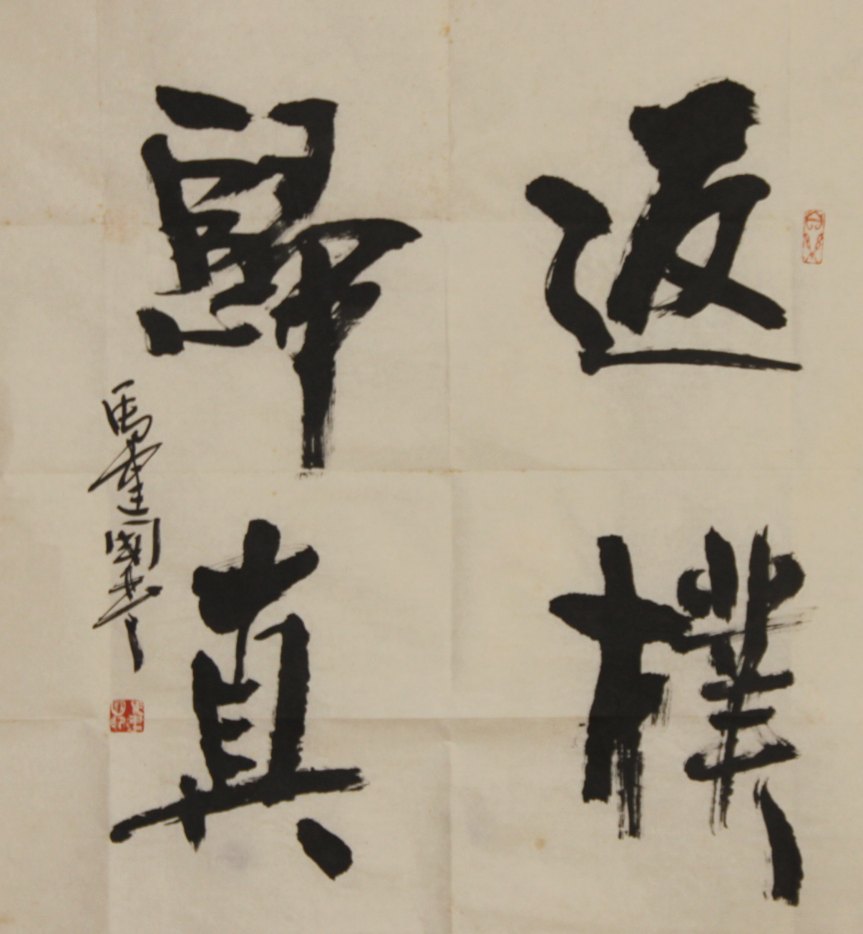 返樸
歸真
馬建國書